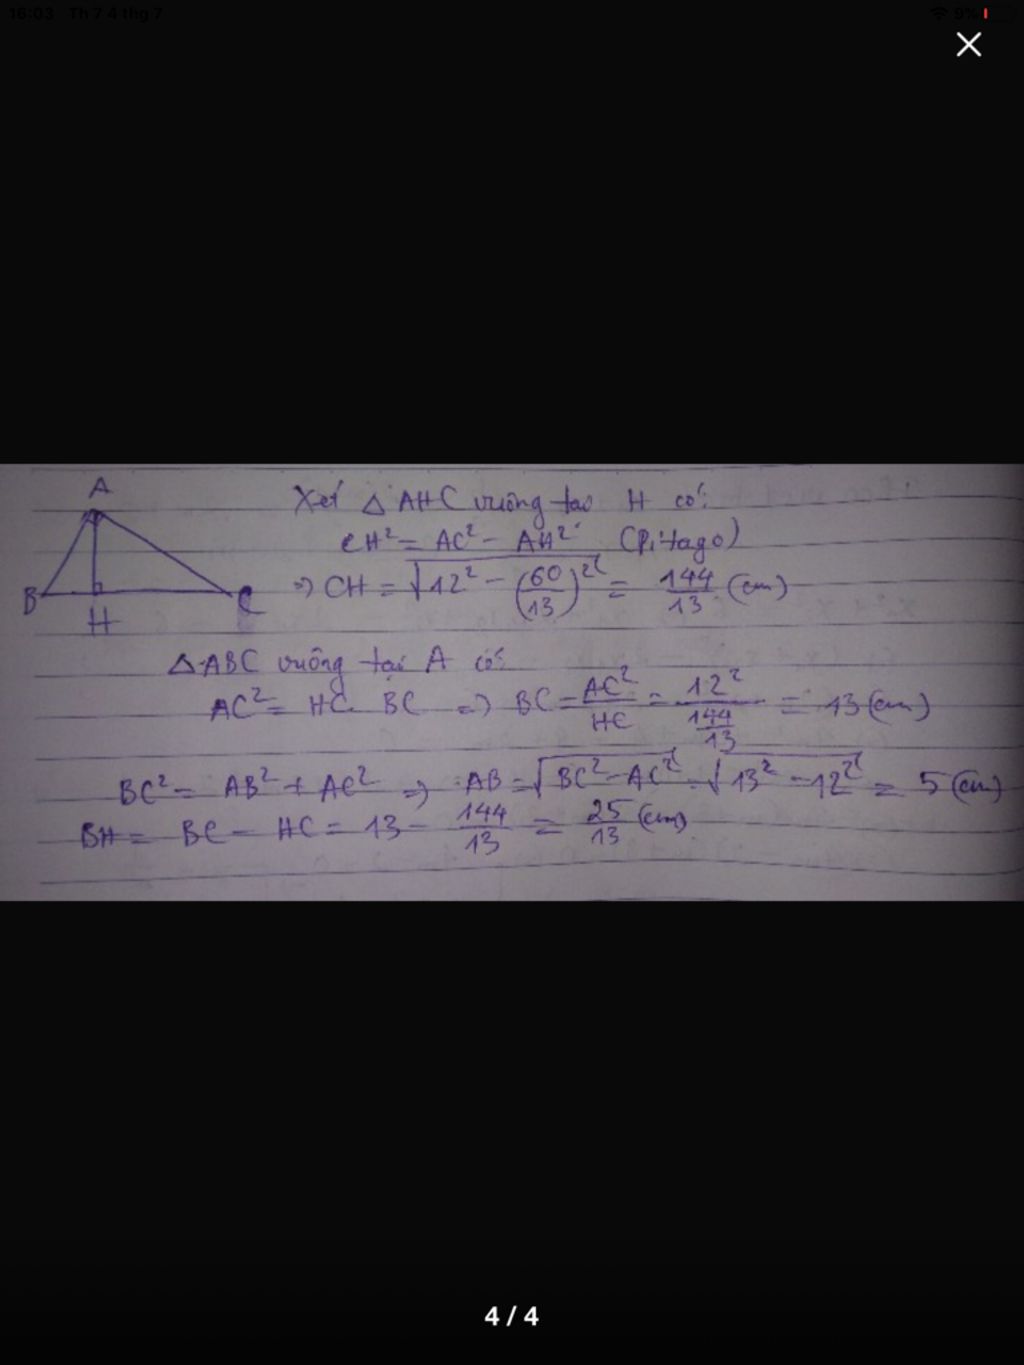 16:03 Th 7 4 thg 7
9%
A
B
H
C
Xét △AHC vuông tại H có:
CH² = AC² - AH² (Pitago)
⇒ CH = √(12² - (60/13)²) = 144/13 (cm)
△ABC vuông tại A có:
AC² = HC. BC ⇒ BC = AC²/HC = 12²/(144/13) = 13 (cm)
BC² = AB² + AC² ⇒ AB = √(BC² - AC²) = √(13² - 12²) = 5 (cm)
BH = BC - HC = 13 - 144/13 = 25/13 (cm)
4 / 4